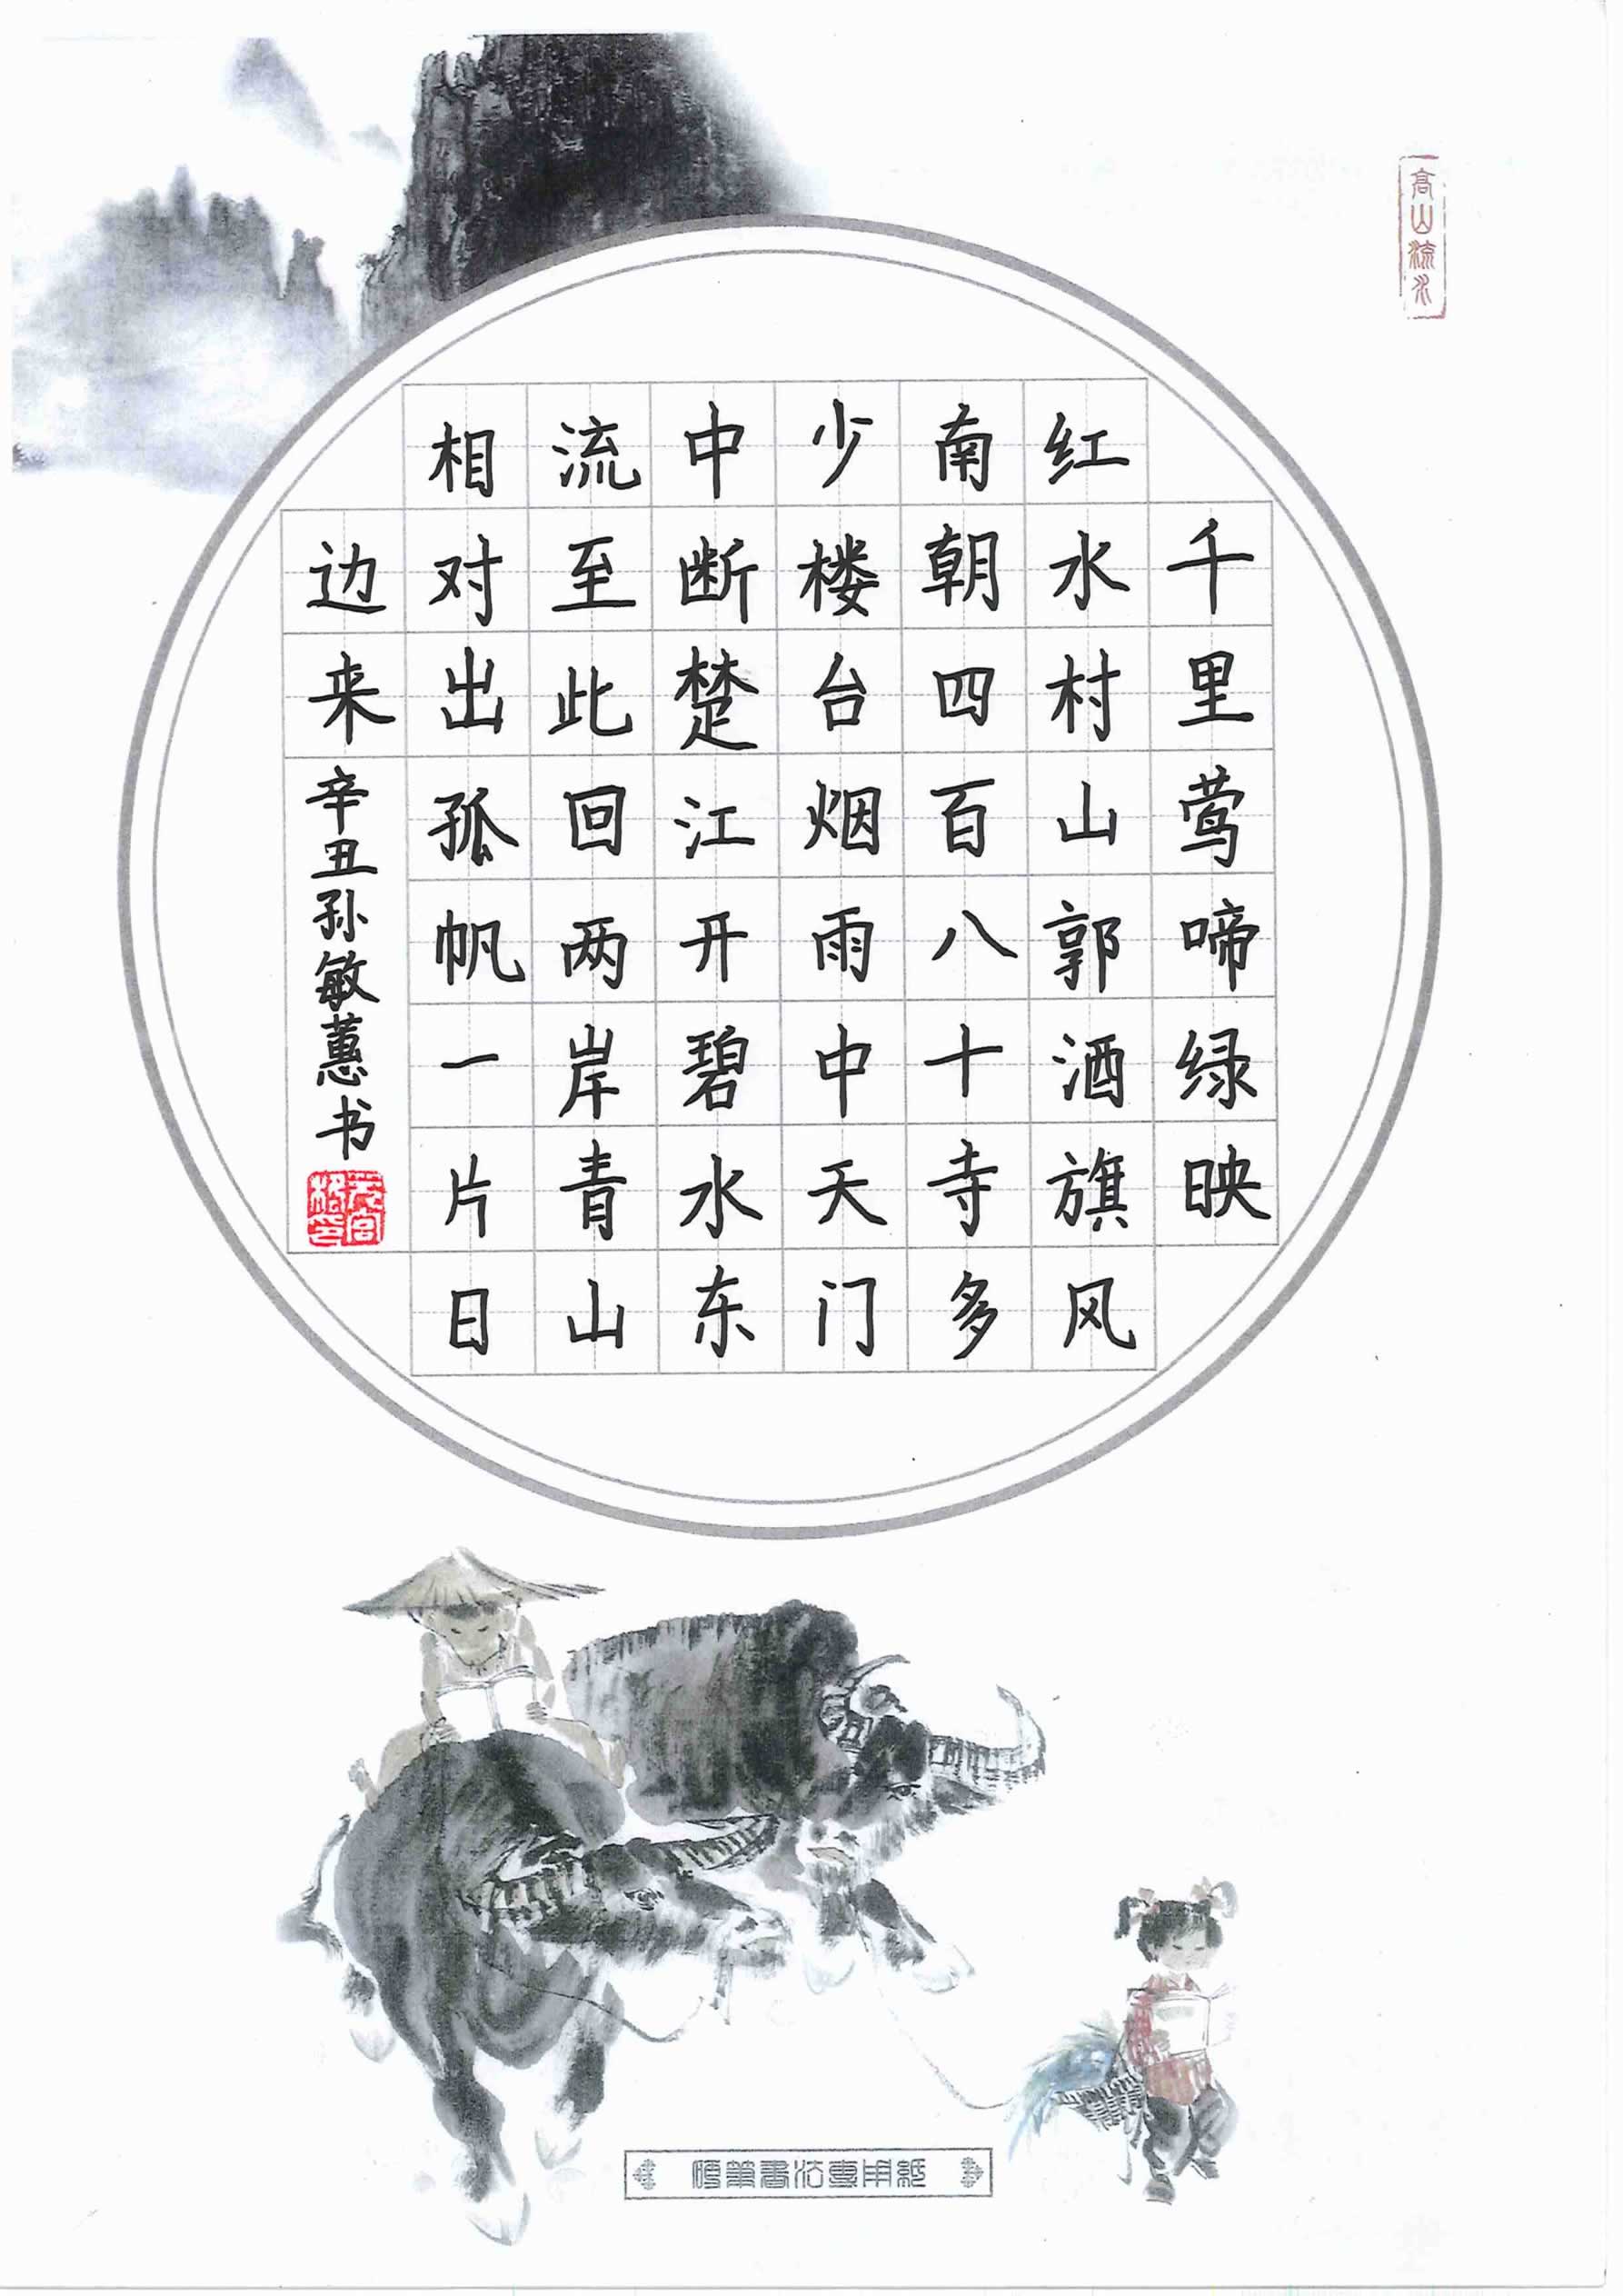 高山流水
千里莺啼绿映
红水村山郭酒旗风
南朝四百八十寺多
少楼台烟雨中天门
中断楚江开碧水东
流至此回两岸青山
相对出孤帆一片日
边来
辛丑孙敏蕙书
硬笔书法专用纸